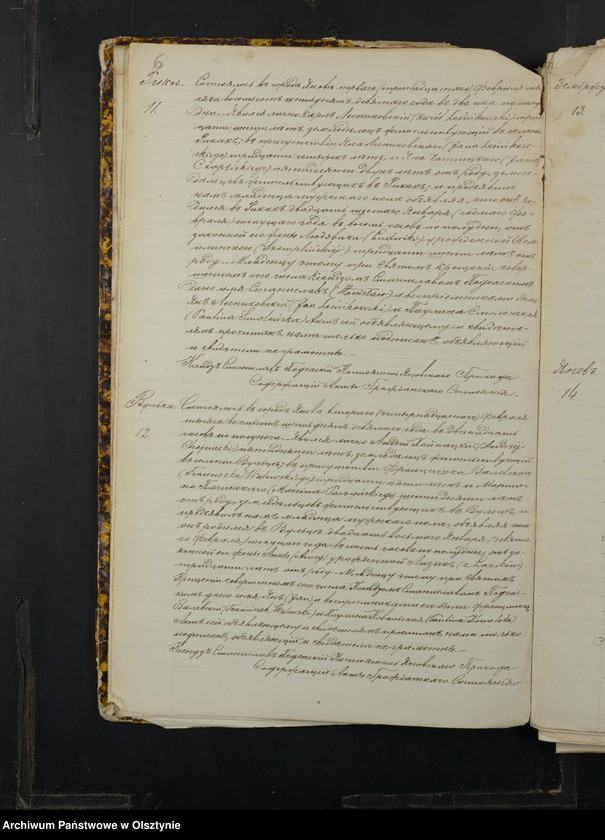 6
Рыки.
11.
Состоялось въ городѣ Яновѣ перваго (тринадцатаго) Февраля ты-
сяча восемьсотъ шестьдесятъ девятаго года въ два часа по полу-
дни. Явился лично Кароль Лесниковскій (Karol Leśnikowski)
лѣтъ, земледѣлецъ жительствующій въ
Рыкахъ; въ присутствіи Яна Лесниковскаго (Jana Leśnikow-
skiego) тридцати четырехъ лѣтъ, и Яна
пятидесяти двухъ лѣтъ отъ роду, земле-
дѣльцевъ жительствующихъ въ Рыкахъ; и предъявилъ
намъ младенца мужескаго пола объявляя, что онъ ро-
дился въ Рыкахъ двадцать шестаго Января (седьмаго Фе-
враля) текущаго года въ восемь часовъ по полудни, отъ
законной его жены Людвики (Ludwiki) урожденной
тридцати шести лѣтъ отъ
роду. Младенцу этому при Святомъ Крещеніи, совер-
шенномъ сего числа Ксендзомъ Станиславомъ
дано имя Станиславъ (Stanisław) а воспріемниками были
Янъ Лесниковскій (Jan Leśnikowski) и Паулина Смоленская
(Paulina Smoleńska) Актъ сей объявляющему и свидѣте-
лямъ прочитанъ, нами только подписанъ, объявляющій
и свидѣтели неграмотны.
Ксендзъ Станиславъ Настоятель Яновскаго Прихода
Содержащій Акты Гражданскаго Состоянія.
Вулька.
12
Состоялось въ городѣ Яновѣ втораго (четырнадцатаго) Февраля
тысяча восемьсотъ шестьдесятъ девятаго года въ двѣнадцать
часовъ полудня. Явился лично Андрей Хойнацкій (Andrzej
Chojnacki) пятидесяти лѣтъ, земледѣлецъ жительствующій
въ Вулькѣ; въ присутствіи Францишка Валевскаго
(Franciszka Walewskiego) тридцати лѣтъ и Марци-
на (Marcina) шестидесяти лѣтъ
отъ роду, земледѣльцевъ жительствующихъ въ Вулькѣ, и
предъявилъ намъ младенца мужескаго пола, объявляя что
онъ родился въ Вулькѣ двадцать восьмаго Января (девята-
го Февраля) текущаго года въ часовъ по полудни, отъ за-
конной его жены Анны (Anny) урожденной
тридцати лѣтъ отъ роду. Младенцу этому при Святомъ
Крещеніи совершенномъ сего числа Ксендзомъ Станиславомъ
дано имя Янъ (Jan) а воспріемниками его были Францишекъ
Валевскій (Franciszek Walewski) и Паулина Ковальская (Paulina Kowalska)
Актъ сей объявляющему и свидѣтелямъ прочитанъ, нами только
подписанъ, объявляющій и свидѣтели неграмотны.
Ксендзъ Станиславъ Настоятель Яновскаго Прихода
Содержащій Акты Гражданскаго Состоянія.
13.
Яновъ.
14
Archiwum Państwowe w Olsztynie
Archiwum Państwowe w Olsztynie